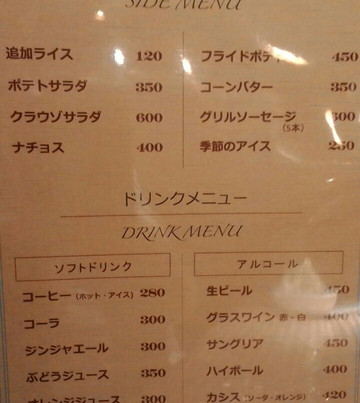 SIDE MENU
追加ライス 120
ポテトサラダ 350
クラウゾサラダ 600
ナチョス 400
フライドポテト 450
コーンバター 350
グリルソーセージ
(5本)
季節のアイス 250
ドリンクメニュー
DRINK MENU
ソフトドリンク
コーヒー (ホット・アイス) 280
コーラ 300
ジンジャエール 300
ぶどうジュース 350
オレンジジュース 300
アルコール
生ビール 450
グラスワイン 赤・白 400
サングリア 450
ハイボール 400
カシス (ソーダ・オレンジ) 420